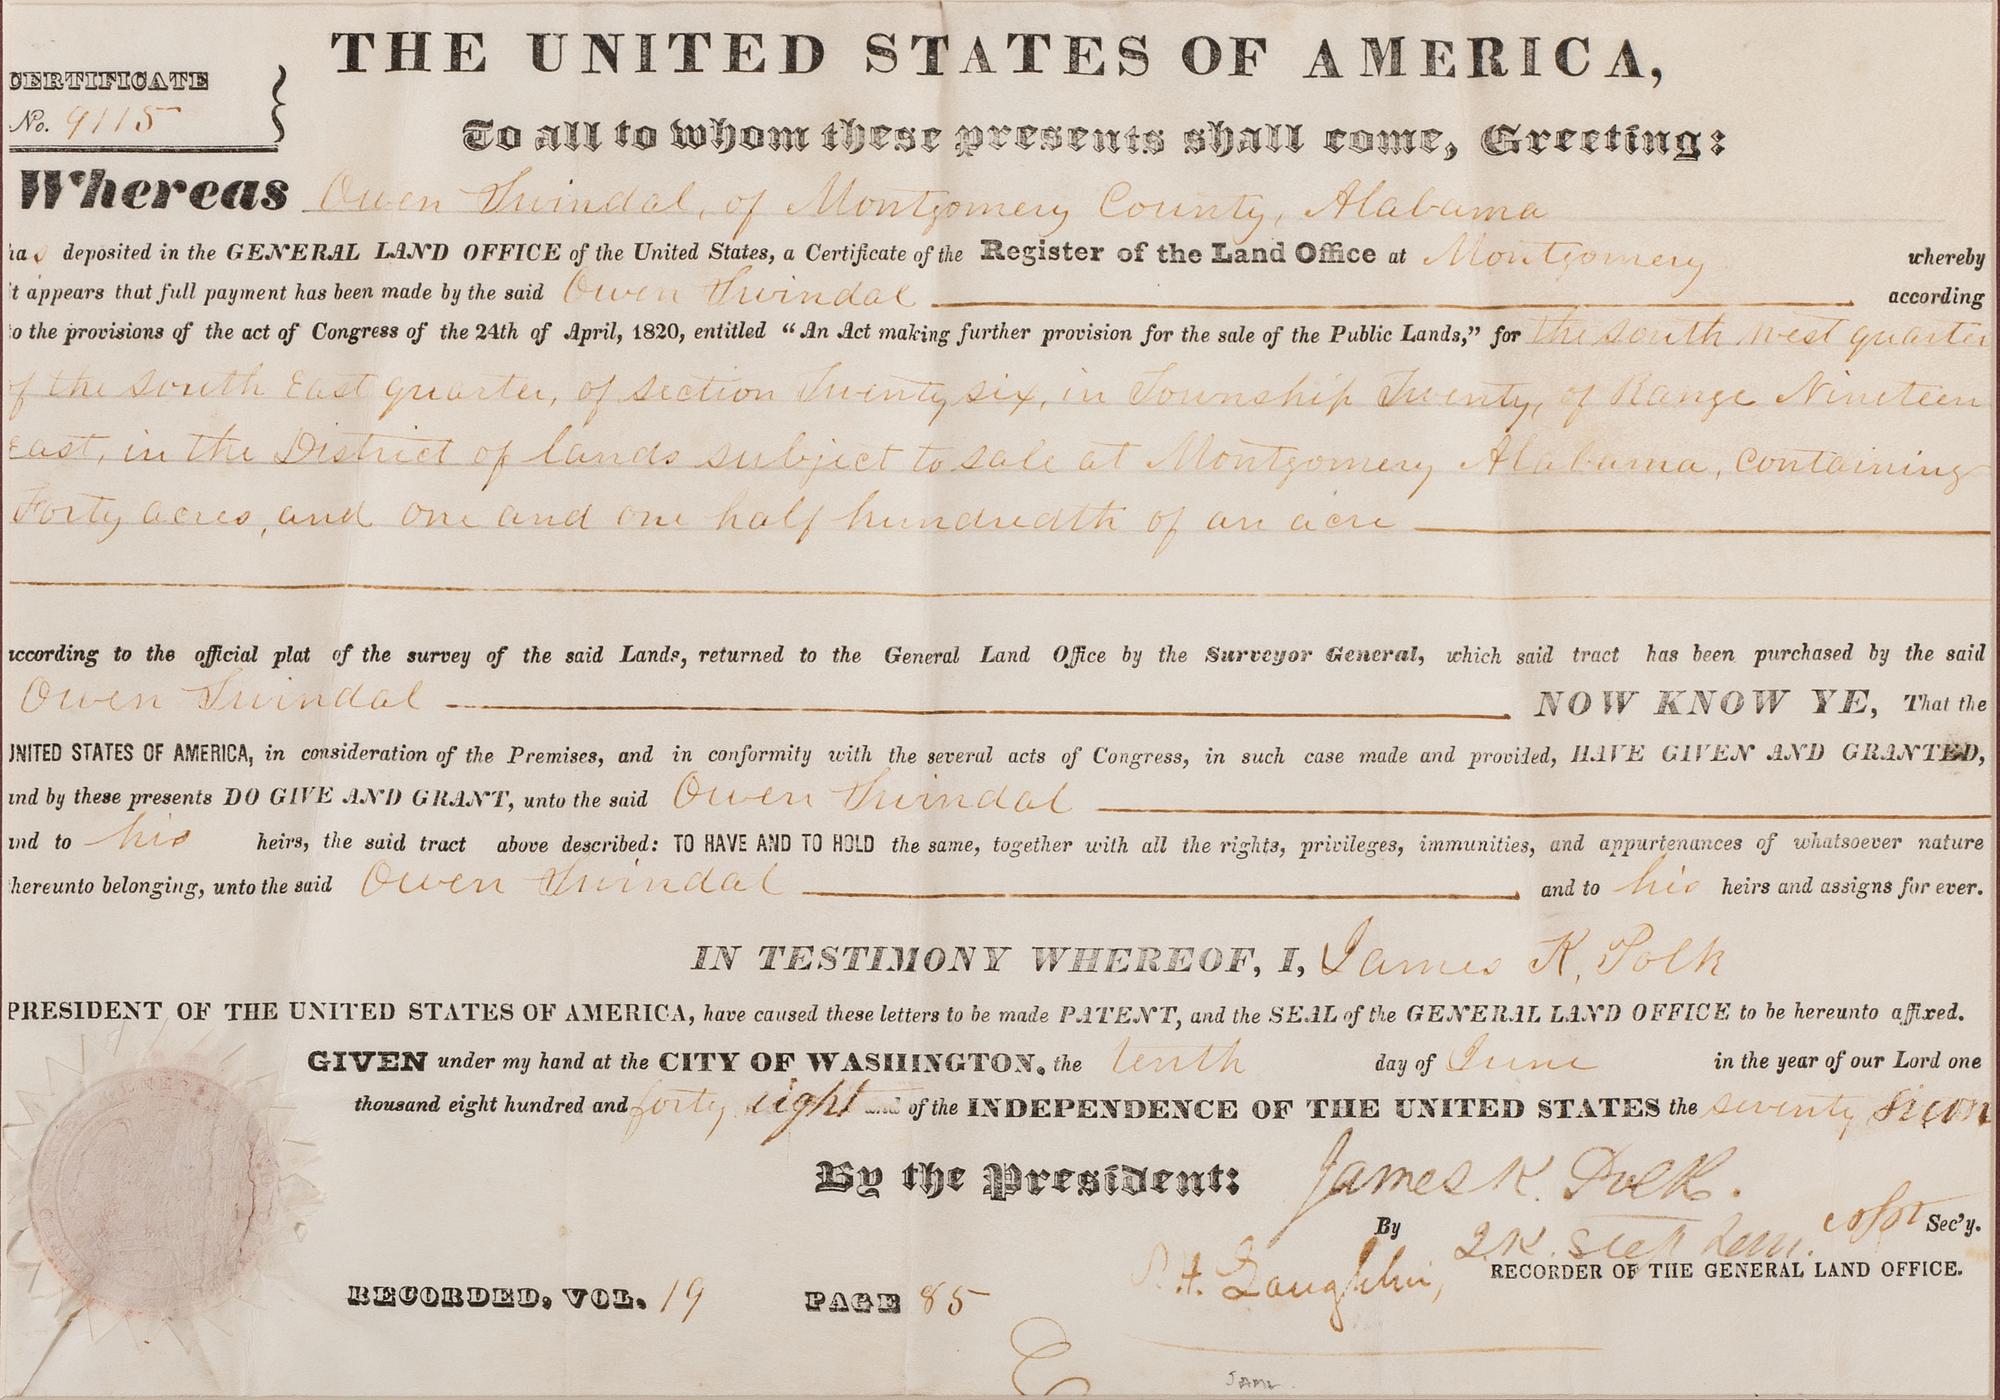 THE UNITED STATES OF AMERICA,
CERTIFICATE
No. 9115
To all to whom these presents shall come, Greeting:
Whereas Owen Swindal, of Montgomery County, Alabama
has deposited in the GENERAL LAND OFFICE of the United States, a Certificate of the Register of the Land Office at Montgomery whereby
it appears that full payment has been made by the said Owen Swindal according
to the provisions of the act of Congress of the 24th of April, 1820, entitled “An Act making further provision for the sale of the Public Lands,” for the South West quarter
of the South East quarter, of section Twenty six, in Township Twenty, of Range Nineteen
East, in the District of lands subject to sale at Montgomery Alabama, containing
Forty acres, and one and one half hundredth of an acre
according to the official plat of the survey of the said Lands, returned to the General Land Office by the Surveyor General, which said tract has been purchased by the said
Owen Swindal NOW KNOW YE, That the
UNITED STATES OF AMERICA, in consideration of the Premises, and in conformity with the several acts of Congress, in such case made and provided, HAVE GIVEN AND GRANTED,
and by these presents DO GIVE AND GRANT, unto the said Owen Swindal
and to his heirs, the said tract above described: TO HAVE AND TO HOLD the same, together with all the rights, privileges, immunities, and appurtenances of whatsoever nature
thereunto belonging, unto the said Owen Swindal and to his heirs and assigns for ever.
IN TESTIMONY WHEREOF, I, James K. Polk
PRESIDENT OF THE UNITED STATES OF AMERICA, have caused these letters to be made PATENT, and the SEAL of the GENERAL LAND OFFICE to be hereunto affixed.
GIVEN under my hand at the CITY OF WASHINGTON, the tenth day of June in the year of our Lord one
thousand eight hundred and forty eight and of the INDEPENDENCE OF THE UNITED STATES the seventy secon
By the President: James K. Polk.
By J. K. Stephens. asst Sec'y.
S. H. Laughlin, RECORDER OF THE GENERAL LAND OFFICE.
RECORDED, VOL. 19 PAGE 85